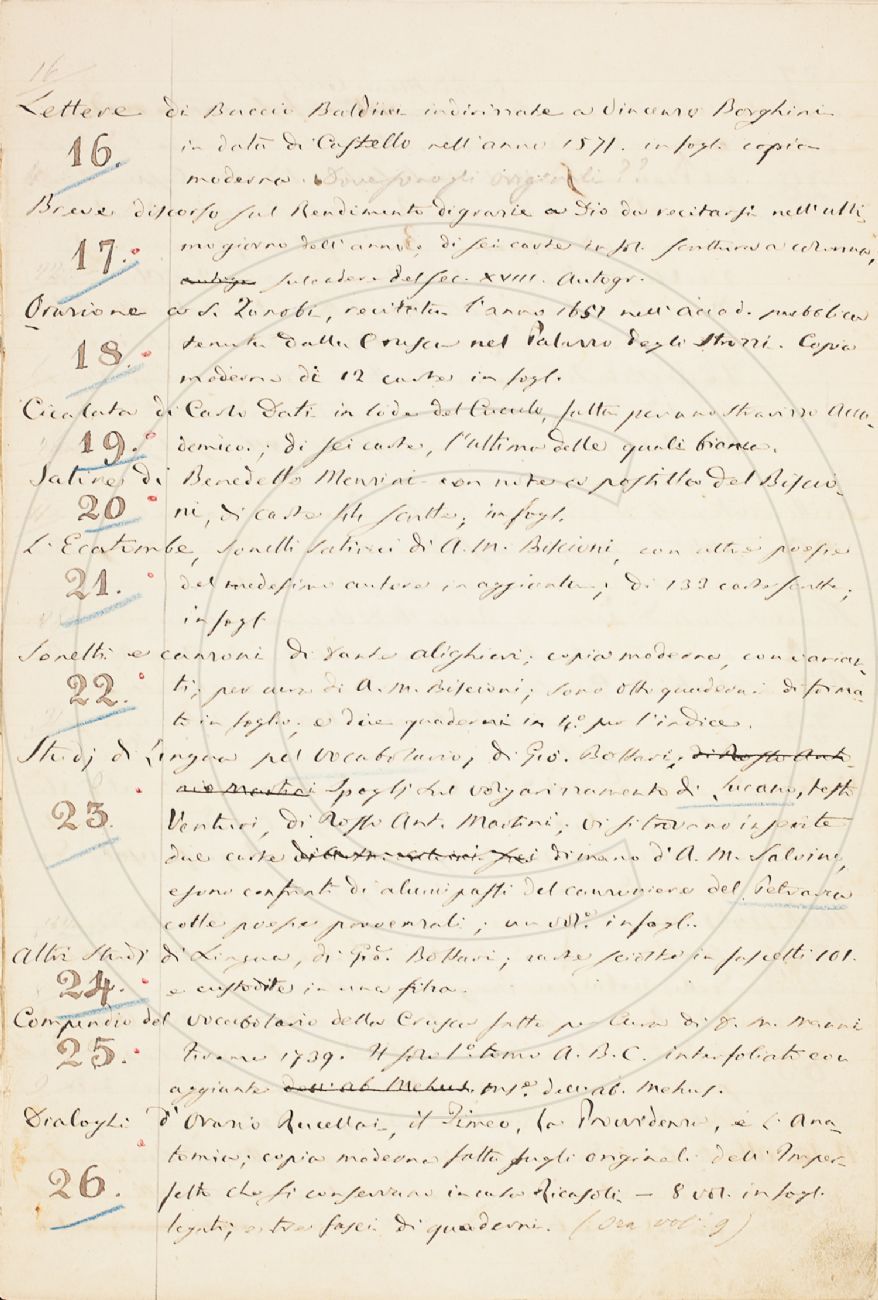 16
Lettere di Baccio Baldini indirizzate a Vincenzo Borghini
16. in data di Castello nell'anno 1571. in fogl. copia
moderna. Dove sono gli originali ??
Breve discorso sul Rendimento di grazie a Dio da recitarsi nell'ulti-
17. mo giorno dell'anno, di sei carte in fol. scrittura a colonna,
autogr. del sec. XVIII. Autogr.
Orazione a S. Zanobi, recitata l'anno 1651 nell'Accad. pubblica
18. tenuta dalla Crusca nel Palazzo degli Strozzi. Copia
moderna di 12 carte in fogl.
Cicalata di Carlo Dati in lode del Cuculo, fatta per uno stravizzo Acca-
19. demico; di sei carte, l'ultima delle quali bianca.
Satire di Benedetto Menzini con note e postille del Biscio-
20 ni, di carte scritte; in fogl.
L'Ecatombe, Sonetti satirici di A. M. Biscioni, con altre poesie
21. del medesimo autore in aggiunta; di 133 carte scritte;
in fogl.
Sonetti e canzoni di Dante Alighieri; copia moderna, con varian-
22. ti; per cura di A. M. Biscioni; sono otto quaderni di forma-
to in foglio, e due quaderni in 4º per l'indice.
Studj di Lingua pel Vocabolario, di Gio. Bottari, di Rosso Anto-
nio Martini Spogli del volgarizzamento di Lucano, testo
23. Venturi, di Rosso Ant. Martini; vi si trovano inserite
due carte di mano d'A. M. Salvini,
e sono confronti di alcuni passi del canzoniere del Petrarca
colle poesie provenzali; un vol.e in fogl.
Altri Studj di Lingua, di Gio. Bottari; carte sciolte in fascetti 101.
24. e custodite in una filza.
Compendio del Vocabolario della Crusca fatto per cura di D. M. Manni
25. Firenze 1739. Il solo 1º tomo A. B. C. interfoliato con
aggiunte dell'ab. Mehus. ms.e dell'ab. Mehus.
Dialoghi d'Orazio Rucellai, il Timeo, la Provvidenza, e l'Ana-
tomia; copia moderna fatta sugli originali dell'Imper-
26. fetto che si conservano in casa Ricasoli — 8 vol. in fogl.
legati; e tre fasci di quaderni. (ora vol. 9)